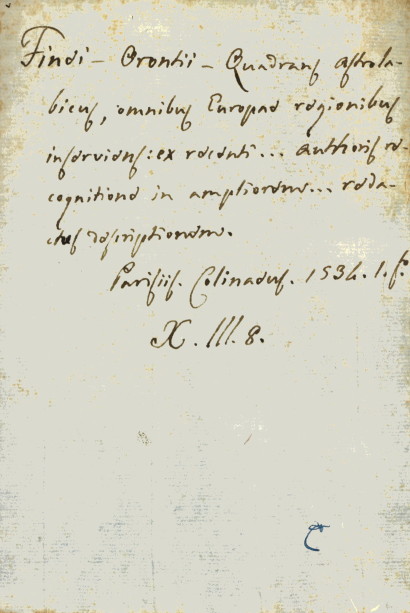 Finei - Orontii - Quadrans astrola-
bicus, omnibus Europae regionibus
inserviens: ex recenti ... authoris re-
cognitione in ampliorem ... reda-
ctus descriptionem.
Parisiis. Colinaeus. 1534. 1. fo.
X. III. 8.
C